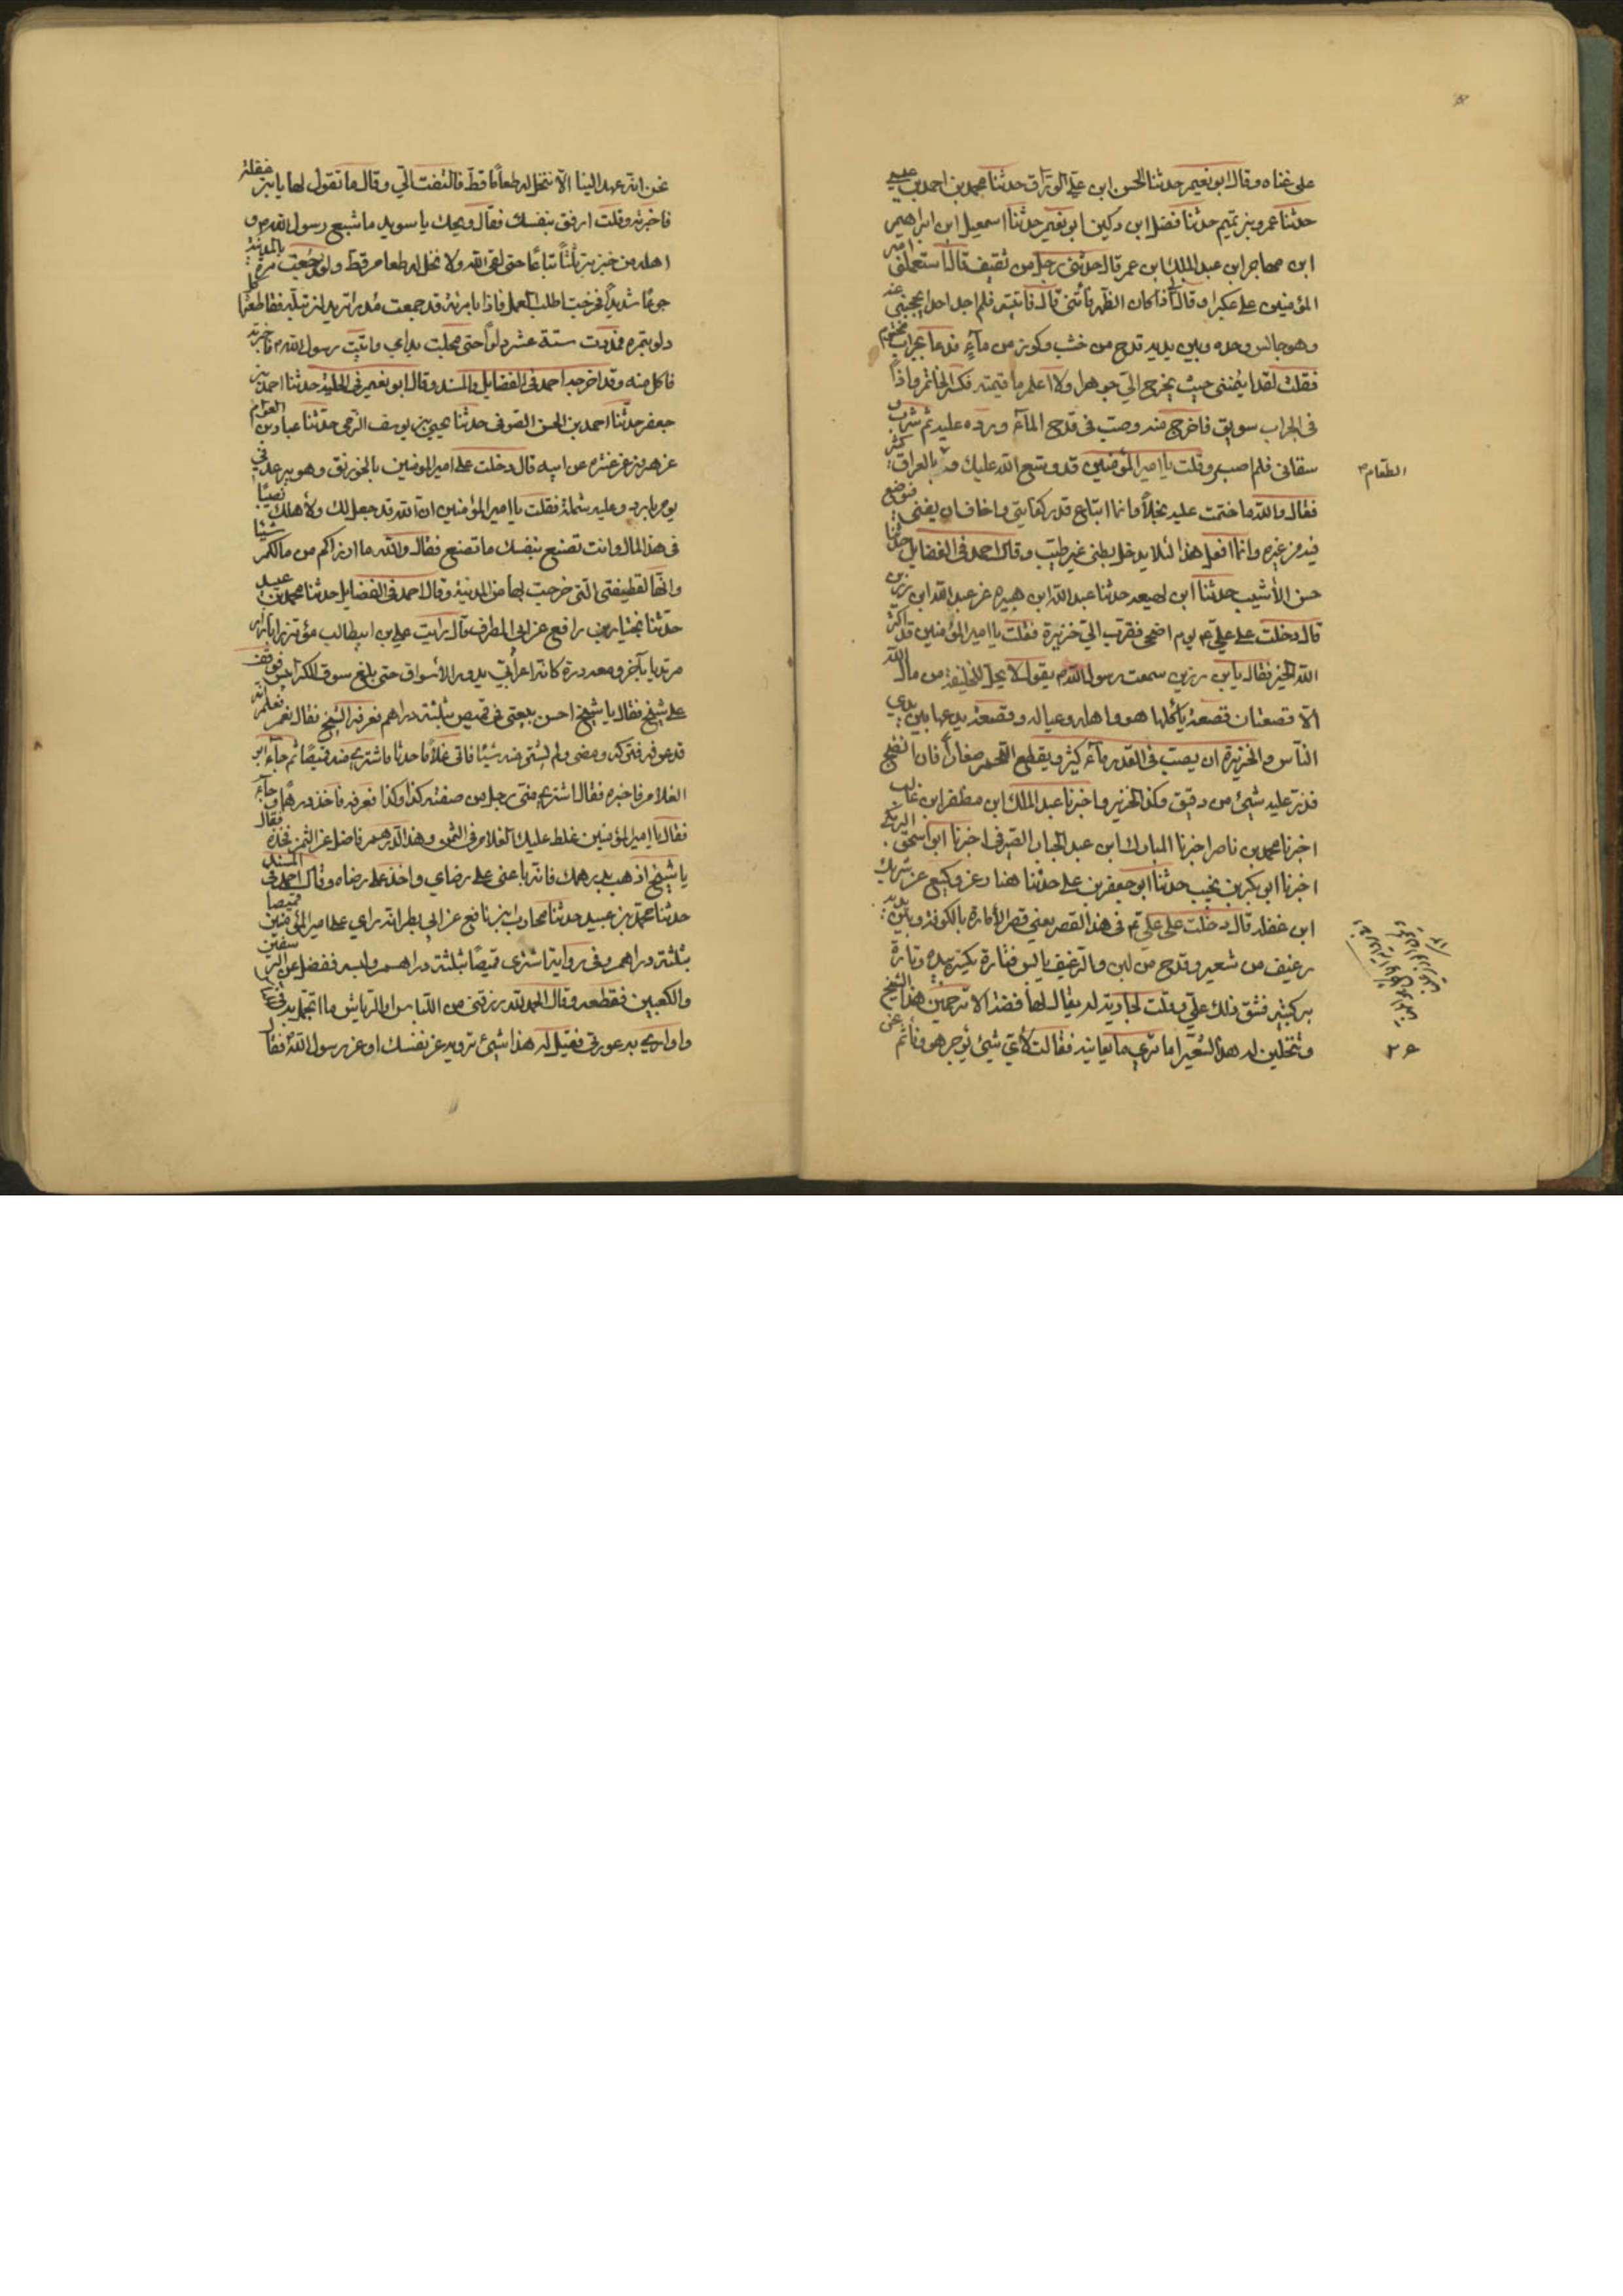 على غناه وقال ابو نعيم حدثنا الحسن ابن علي الوراق حدثنا محمد بن احمد بن عيسى
حدثنا عمرو بن تميم حدثنا فضل ابن دكين ابو نعيم حدثنا اسمعيل ابن ابراهيم
ابن مهاجر ابن عبد الملك ابن عمر قال حدثني رجل من ثقيف قال استعملني امير
المؤمنين على عكبرا وقال اذا كان الظهر فأتني قال فاتيته فلم اجد احدا يحجبني عنه
وهو جالس وحده وبين يديه قدح من خشب وكوز من مآء فدعا بجراب مختوم
فقلت لقد ايتمنني حيث يخرج الي جوهرا ولا اعلم ما قيمته فكسر الخاتم فاذا
في الجراب سويق فاخرج منه وصب في قدح المآء وبرده عليه ثم شرب و
سقاني فلم اصبر وقلت يا امير المؤمنين قد وسع الله عليك و بالعراق كثير
الطعام
فقال والله ما ختمت عليه بخلاً وانما ابتاع قدر كفايتي واخاف ان يفنى فيوضع
فيه من غيره وانما افعل هذا لئلا يدخل بطني غير طيب وقال احمد في الفضايل حدثنا
حسن الأشيب حدثنا ابن لهيعه حدثنا عبد الله ابن هبيره عن عبد الله ابن رزين
قال دخلت على علي ع يوم اضحى فقرب الي خزيرة فقلت يا امير المؤمنين قد اكثر
الله الخير فقال يابن رزين سمعت رسول الله ص يقول لا يحل للخليفة من مال الله
الا قصعتان قصعة يأكلها هو واهله وعياله وقصعة يدعها بين يدي
الناس والخزيرة ان يصب في القدر مآء كثير ويقطع اللحم صغاراً فان انضج
فذر عليه شيئ من دقيق وكذا الخزير واخبرنا عبد الملك ابن مظفر ابن غالب
اخبرنا محمد بن ناصر اخبرنا المبارك ابن عبد الجبار الصيرفي اخبرنا ابو اسحق البرمكي
اخبرنا ابو بكر بن نجيب حدثنا ابو جعفر بن علي حدثنا هناد عن وكيع عن شريك
ابن غفله قال دخلت على علي ع في هذا القصر يعني قصر الأمارة بالكوفة وبين يديه
رغيف من شعير وقدح من لبن والرغيف يابس فتارة يكسره بيده وتارة
بركبتيه فشق ذلك علي وقلت لجارية له يقال لها فضة الا ترحمين هذا الشيخ
وتنخلين له هذا الشعير اما ترى ما يعانيه فقالت لأي شيئ يوجر هو ونأثم
نحن انه عهد الينا الا ننخل له طعاماً قط فالتفت الي وقال ما تقول لها يابن غفلة
فاخبرته وقلت ارفق بنفسك فقال ويحك يا سويد ما شبع رسول الله ص و
اهله من خبز بر ثلثاً تباعاً حتى لقي الله ولا نخل له طعام قط ولقد جعت مرة بالمدينة
جوعا شديداً فخرجت اطلب العمل فاذا بامرئة قد جمعت مدراً تريد ان تبله فقاطعتها كل
دلو بتمره فمددت ستة عشر دلواً حتى مجلت يداي واتيت رسول الله ص فاخبرته
فاكل منه وقد اخرجه احمد في الفضايل والمسند وقال ابو نعيم في الحلية حدثنا احمد بن
جعفر حدثنا احمد بن الحسن الصوفي حدثنا يحيى بن يوسف الرقى حدثنا عباد بن العوام
عن هرون عن عنتره عن ابيه قال دخلت على امير المؤمنين بالخورنق وهو يرعد في
يوم بارد وعليه شملة فقلت يا امير المؤمنين ان الله قد جعل لك ولأهلك نصيبا
في هذا المال وانت تصنع بنفسك ما تصنع فقال والله ما ارزأكم من مالكم شيئا
وانها لقطيفتي التي خرجت بها من المدينة وقال احمد في الفضايل حدثنا محمد بن عبيد
حدثنا مختار بن رافع عن ابي المطرف قال رايت علي بن ابيطالب مؤتزراً بازار
مرتديا بآخر ومعه درة كانه اعرابي يدور الأسواق حتى بلغ سوق الكرابيس فوقف
على شيخ فقال يا شيخ احسن بيعتى في قميص بثلثة دراهم فعرفه الشيخ فقال نعم فعلم انه
قد عرفه فتركه ومضى ولم يشتر منه شيئا فاتى غلاما حدثا فاشترى منه قميصا ثم جآء ابو
الغلام فاخبره فقال اشترى مني رجل من صفته كذا وكذا فعرفه فاخذ درهما وجآء
فقال يا امير المؤمنين غلط عليك الغلام في الثمن وهذا الدرهم فاضل عن الثمن فخذه فقال
يا شيخ اذهب بدرهمك فانه باعني على رضاي واخذ على رضاه وقال احمد في المسند
حدثنا محمد بن عبيد حدثنا مختار بن نافع عن ابي مطر انه راى عليا امير المؤمنين قميصا
بثلثة دراهم وفي رواية اشترى قميصا بثلثة دراهم ولبسه ففضل عن الرسغين
والكعبين فقطعه وقال الحمد لله رزقني من اللباس والرياش ما اتجمل به في الناس
واوارى به عورتي فقيل له هذا شيئ ترويه عن نفسك او عن رسول الله فقال